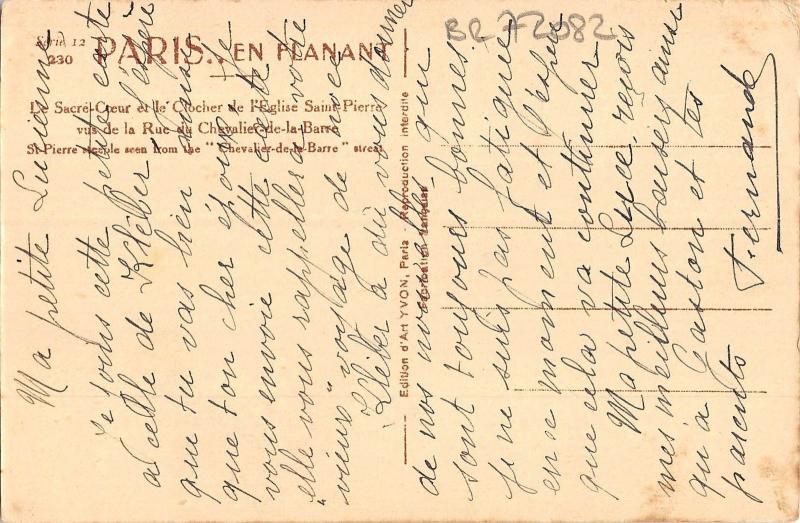 BR 72082
Série 12
230
PARIS... EN FLANANT
Le Sacré-Cœur et le Clocher de l'Eglise Saint-Pierre
vus de la Rue du Chevalier-de-la-Barre
St-Pierre steeple seen from the "Chevalier-de-la-Barre" street
Edition d'Art YVON, Paris - Reproduction interdite
Fabrication française
Ma petite Lucienne
Je joins cette petite carte
à celle de Kléber. J'espère
que tu vas bien ainsi
que ton cher époux. Je
vous envoie cette carte
elle vous rappellera votre
"vieux" voyage de noces
Kléber a dû vous donner
de nos nouvelles - que
sont toujours bonnes.
Je ne suis pas fatiguée
en ce moment et j'espère
que cela va continuer
Ma petite Luce, reçois
mes meilleurs baisers ainsi
qu'à Gaston et tes
parents
Fernande